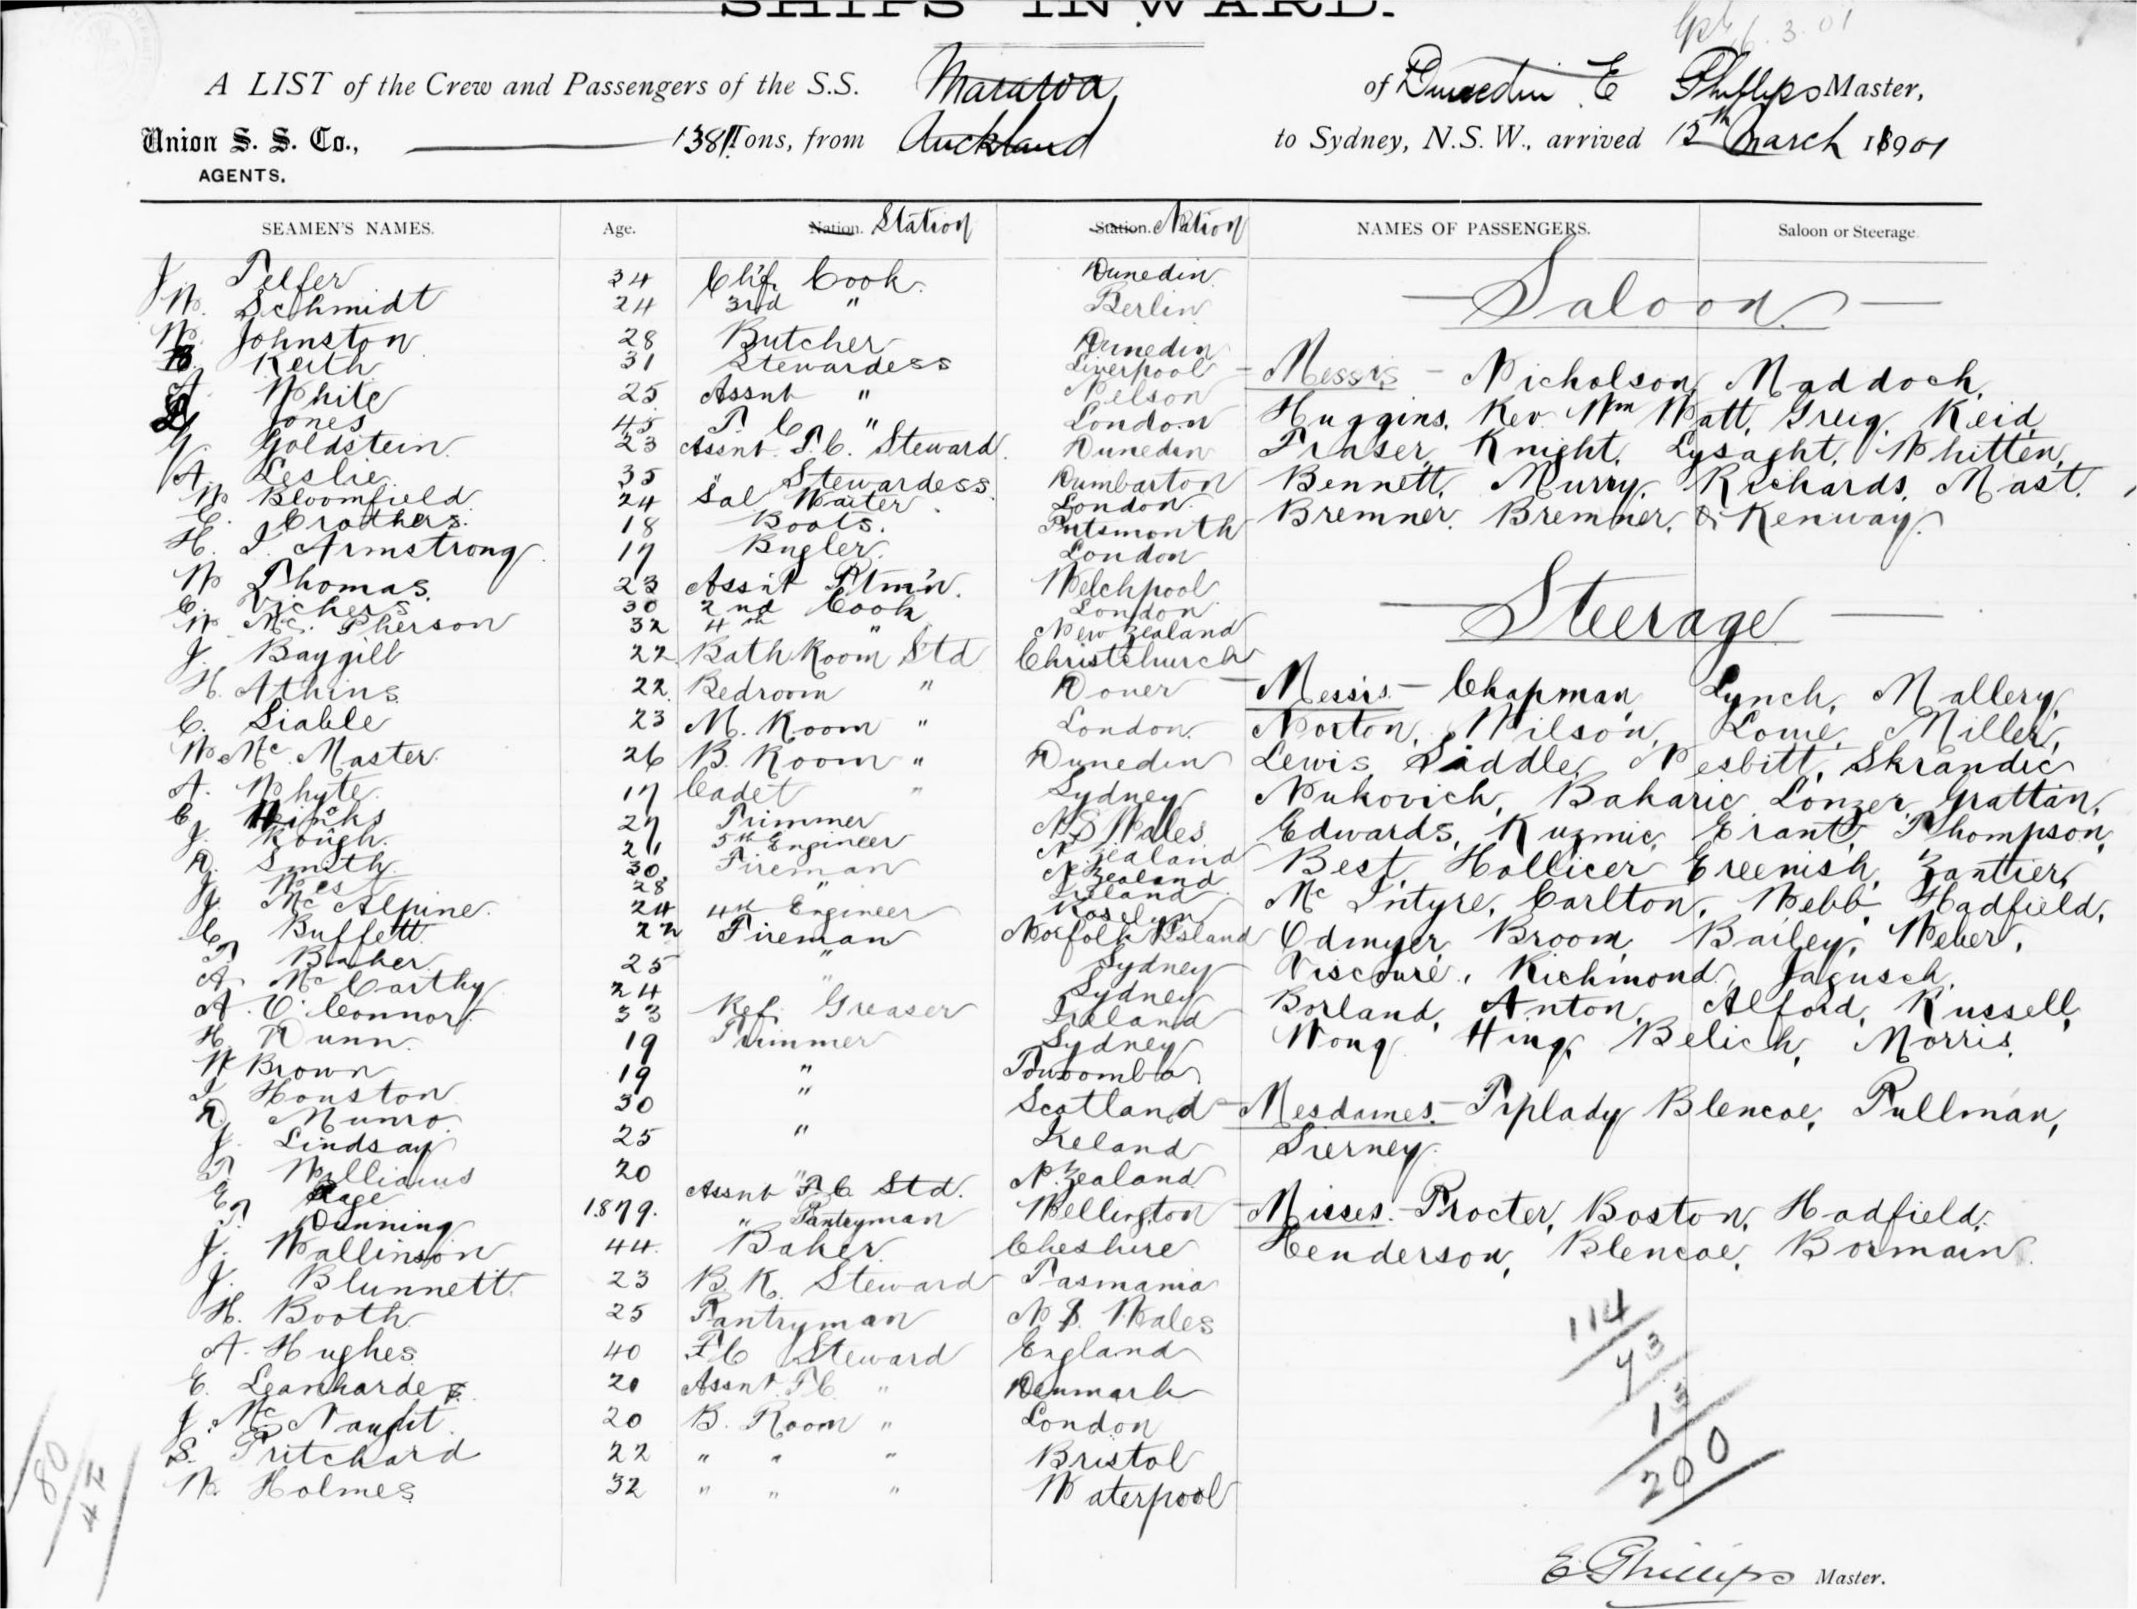 SHIPS INWARD.
A LIST of the Crew and Passengers of the S.S. Mararoa of Dunedin E Phillips Master,
Union S. S. Co., 1381 Tons, from Auckland to Sydney, N.S.W., arrived 12th March 1901
AGENTS.
SEAMEN'S NAMES. Age. Nation. Station Station. Nation NAMES OF PASSENGERS. Saloon or Steerage
J Telfer 34 Chf. Cook. Dunedin
W. Schmidt 24 3rd " Berlin
W. Johnston 28 Butcher Dunedin
B. Keith 31 Stewardess Liverpool
A. White 25 Assnt " Nelson
Jones 45 T C " London
G. Goldstein 23 Assnt. F.C. Steward Dunedin
A. Leslie 35 " Stewardess Dumbarton
W Bloomfield 24 Sal Waiter London
C. Crothers. 18 Boots. Putsmonth
H. I. Armstrong 17 Bugler London
W Thomas. 23 Assnt Ptm'n. Welchpool
C. Vickers 30 2nd Cook London
W Mc. Pherson 32 4th " New Zealand
J. Baygill 22 Bath Room Std Christchurch
H. Atkins 22. Bedroom " Dover
C. Siable 23 M. Room " London
W. Mc Master. 26 B. Room " Dunedin
A. Whyte 17 Cadet " Sydney
C. Hinks 27 Trimmer N S Wales
J. Rough. 21 5th Engineer N. Zealand
R. Smith. 30. Fireman N. Zealand
J. 28 " Ireland
J. Mc Alpine. 24 4th Engineer Roselyn
C. Buffett 22 Fireman Norfolk Island
T. Baker 25 " Sydney
A. Mc Carthy 24 Sydney
A. O. Connor. 33 Ref. Greaser Ireland
H. Dunn. 19 Trimmer Sydney
W Brown 19 " Towoomba
J Houston 30 " Scotland
D. Munro.
J. Lindsay 25 " Ireland
T Williams 20 " N. Zealand
E. Page 1879. Assnt F.C. Std. Wellington
T. Dunning " Pantryman
J. Wallinson 44 Baker Cheshire
J. Blunnett. 23 B.R. Steward Tasmania
H. Booth 25 Pantryman N S. Wales
A. Hughes 40 F C Steward England
E. Leanharde 21 Assnt. F.C. " Denmark
J. Mc Naught 20 B. Room " London
S. Pritchard 22 " " " Bristol
W. Holmes 32 " " " Waterpool
Saloon
Messrs - Nicholson, Maddock,
Huggins, Rev. Wm Watt, Greig, Reid,
Fraser, Knight, Lysaght, Whitten,
Bennett, Murry, Richards, Mast.
Bremner, Bremner, & Kenway.
Steerage
Messrs - Chapman, Lynch, Mallery,
Norton, Wilson, Lome, Miller,
Lewis, Siddle, Nesbitt, Skrandic
Nukovich, Bakaric, Lonzer, Grattan,
Edwards, Kuzmic, Grant, Thompson,
Best, Hollicer, Greenish, Zantier,
Mc Intyre, Carlton, Webb, Hadfield,
Odmyer, Broom, Bailey, Weber,
Viscouré, Richmond, Jagusch,
Borland, Anton, Alford, Russell,
Wong Hing, Belich, Morris.
Mesdames - Piplady, Blencoe, Pullman,
Sierney
Misses. - Procter, Boston, Hadfield,
Henderson, Blencoe, Bormain.
114
73
13
200
80
47
E Phillips Master.